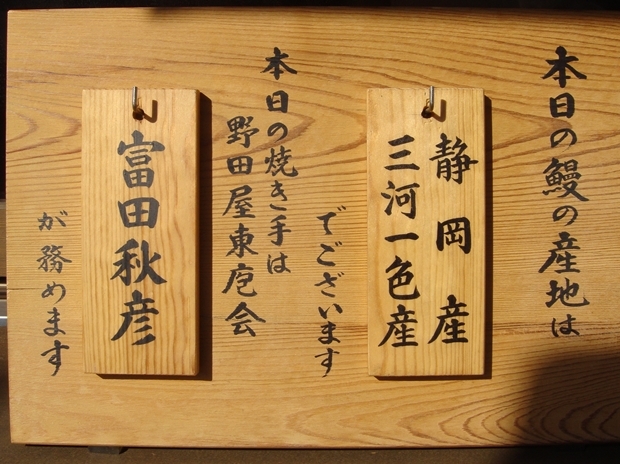 本日の鰻の産地は
静岡産
三河一色産
でございます
本日の焼き手は
野田屋東庖会
富田秋彦
が務めます